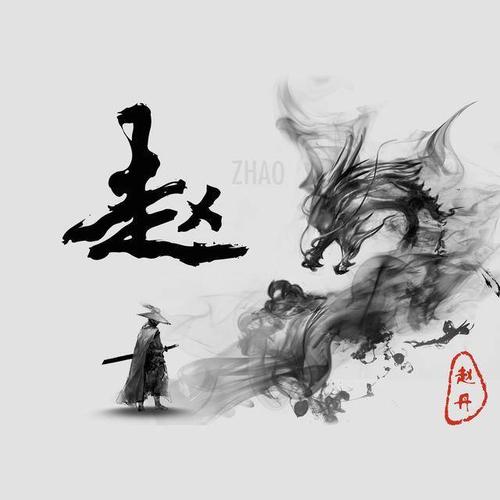 赵
ZHAO
赵
丹